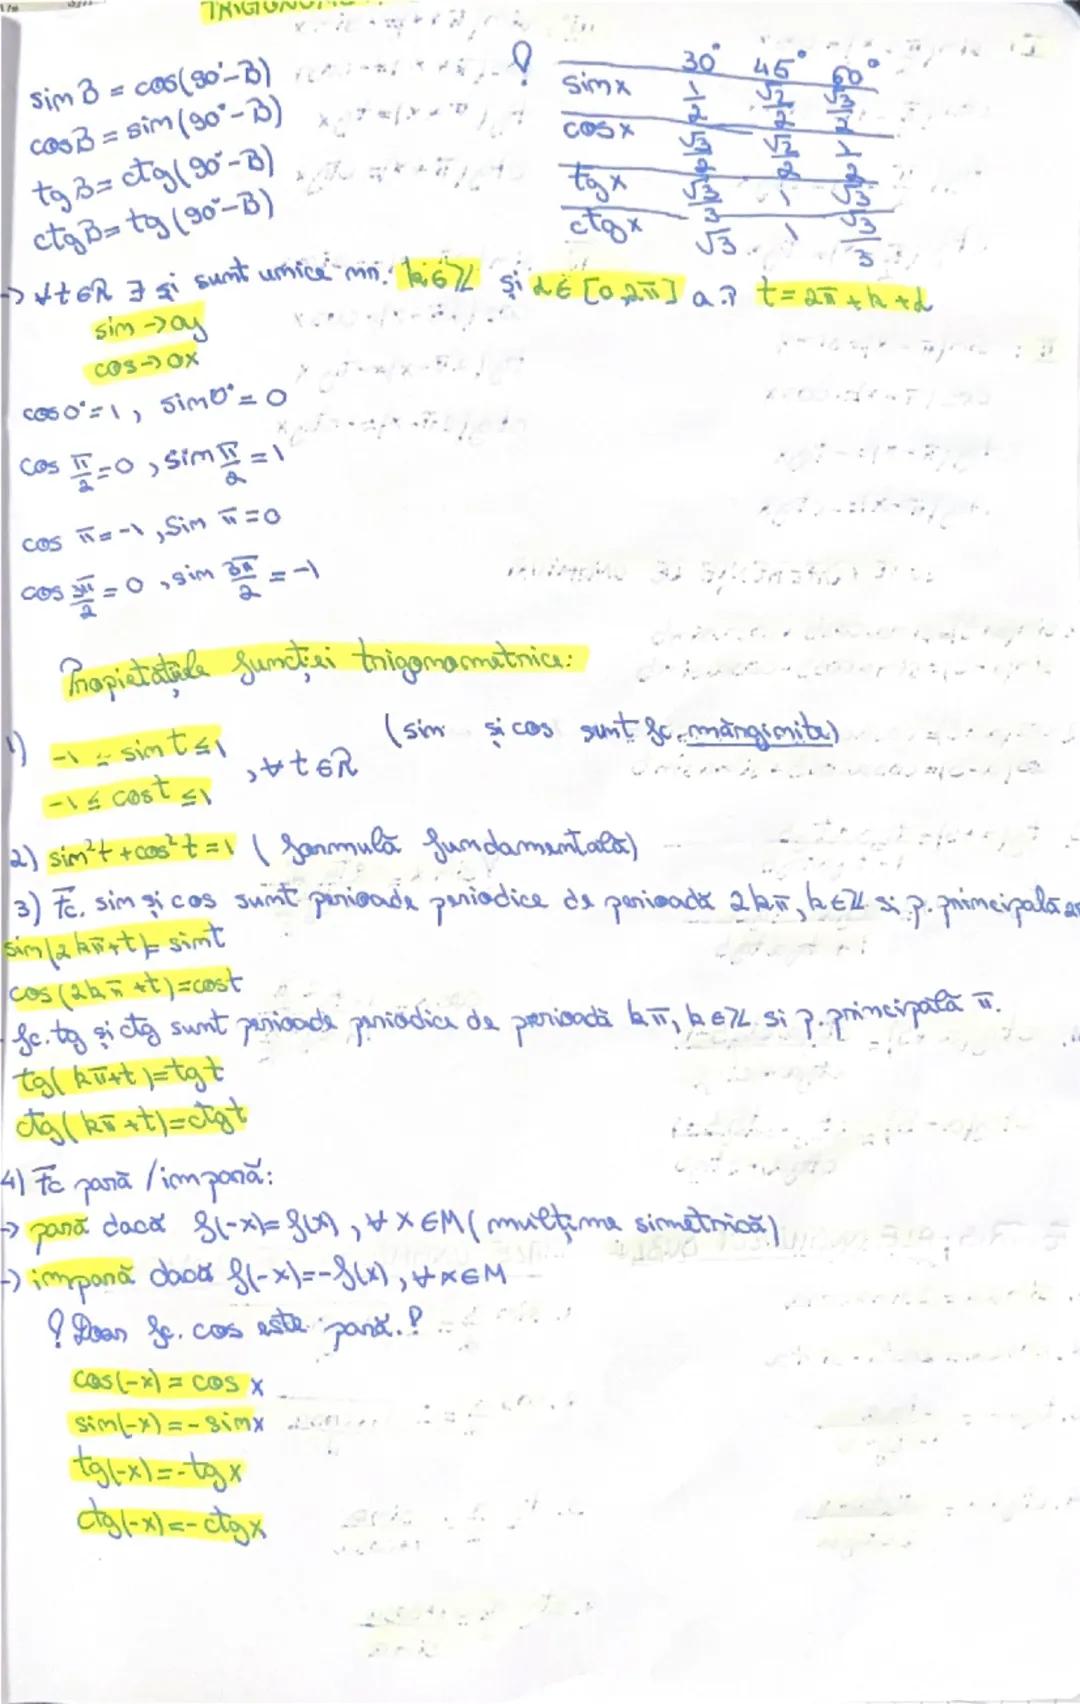 TRIGONOM
sin B = cos(90°-B)
cos B = sin(90°-B)
tg B = ctg(90°-B)
ctg B = tg(90°-B)
! 30° 45° 60°
sin x 1/2 √2/2 √3/2
cos x √3/2 √2/2 1/2
tg x √3/3 1 √3
ctg x √3 1 √3/3
→ ∀t∈R ∃ și sunt unice nr. k∈Z și α∈[0,2π] a.î t=2π+k+α
sin→oy
cos→ox
cos 0°=1, sin 0°=0
cos π/2=0, sin π/2=1
cos π=-1, sin π=0
cos 3π/2=0, sin 3π/2=-1
Propietațile funcției trigonometrice:
1) -1 ≤ sin t ≤ 1 (sin și cos sunt fc. mărginite)
, ∀t∈R
-1 ≤ cos t ≤ 1
2) sin²t + cos²t = 1 (formulă fundamentală)
3) Fc. sin și cos sunt perioade periodice de perioadă 2kπ, k∈Z si p. principală 2π
sin(2kπ+t)= sin t
cos(2kπ+t)=cos t
fc. tg și ctg sunt perioade periodice de perioadă kπ, k∈Z si p. principală π.
tg(kπ+t)=tg t
ctg(kπ+t)=ctg t
4) Fc pară / impară:
→ pară dacă f(-x)=f(x), ∀x∈M (mulțime simetrică)
→ impară dacă f(-x)=-f(x), ∀x∈M
! Doar fc. cos este pară. !
cos(-x) = cos x
sin(-x) = - sin x
tg(-x)=-tg x
ctg(-x)=-ctg x